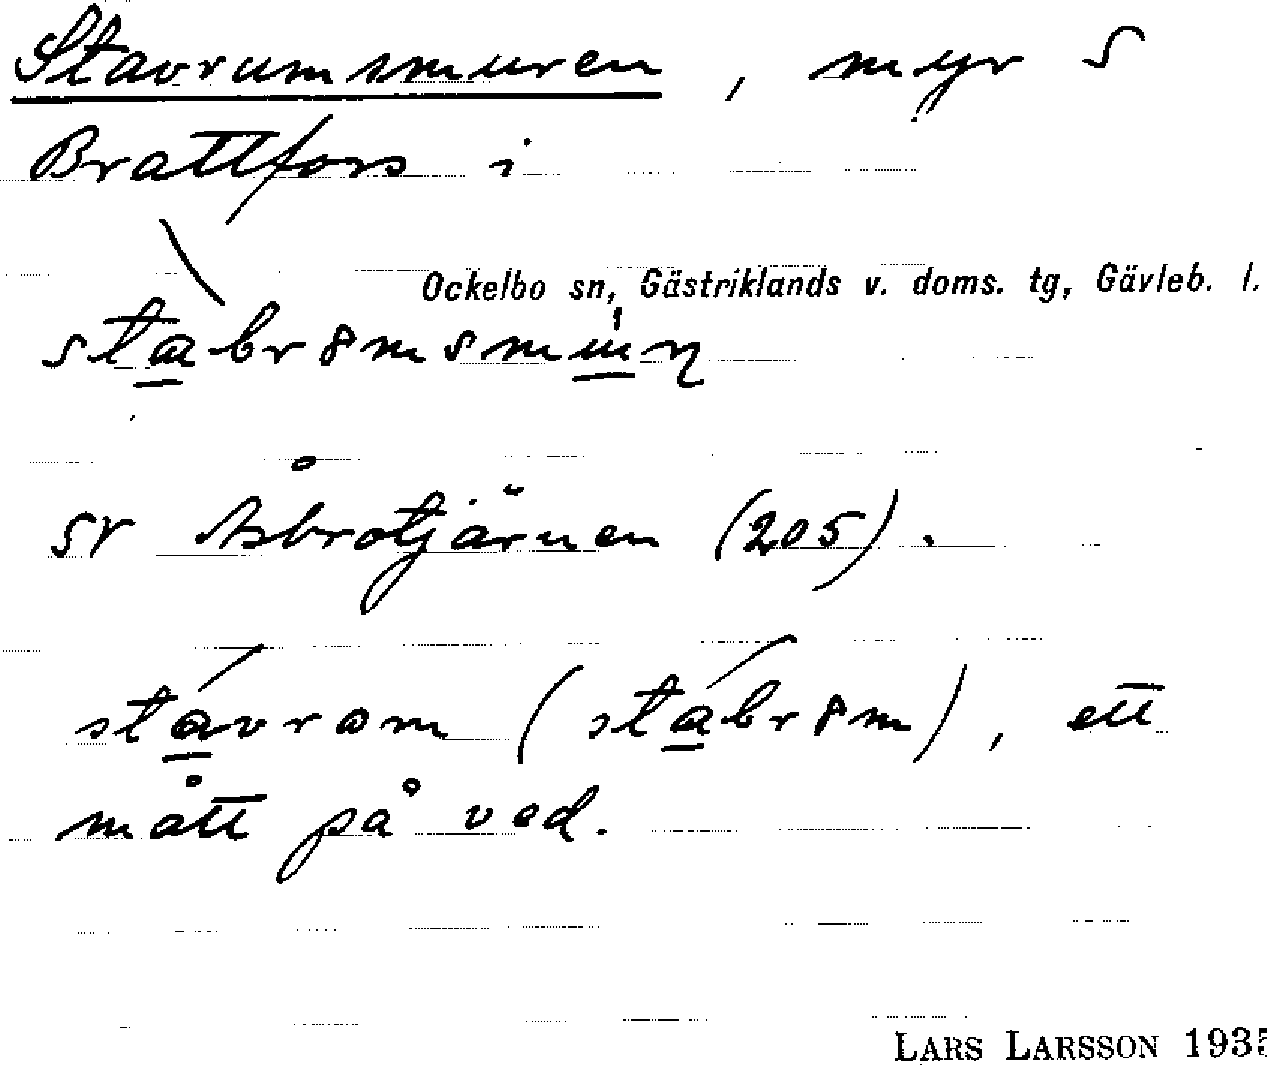 Stavrumsmuren, myr S
Brattfors i
Ockelbo sn, Gästriklands v. doms. tg, Gävleb. l.
SV Åbrotjärnen (205).
stavrom (stabr8m), ett
mått på ved.
LARS LARSSON 1935